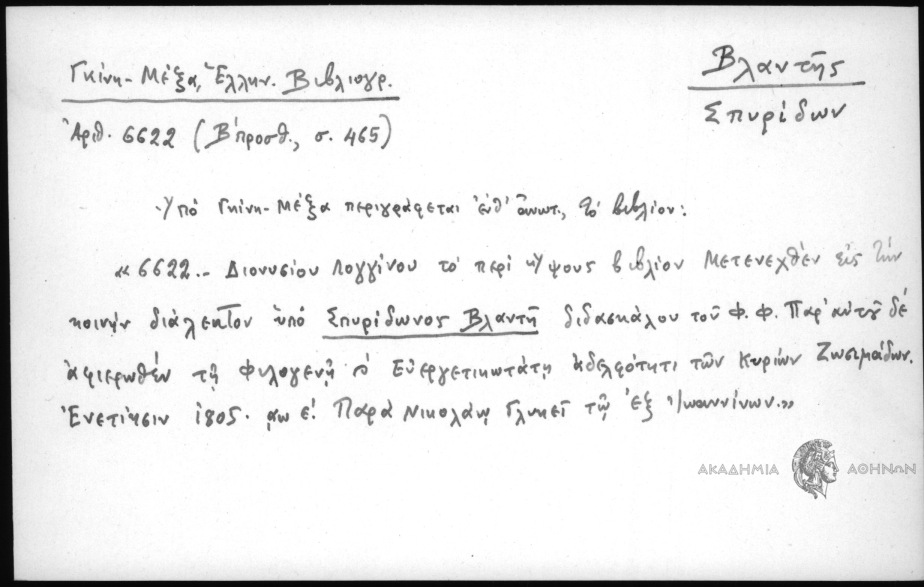 Γκίνη-Μέξα, Ἑλλην. Βιβλιογρ.
Βλαντῆς
Σπυρίδων
Ἀριθ. 6622 (Β' προσθ., σ. 465)
Ὑπό Γκίνη-Μέξα περιγράφεται ἐνθ' ἀνωτ., τό βιβλίον:
«6622.- Διονυσίου Λογγίνου τό περί ὕψους βιβλίον Μετενεχθέν εἰς τήν
κοινήν διάλεκτον ὑπό Σπυρίδωνος Βλαντῆ διδασκάλου τοῦ Φ. Φ. Παρ' αὐτοῦ δέ
ἀφιερωθέν τῇ Φιλογενῇ Εὐεργετικωτάτῃ ἀδελφότητι τῶν Κυρίων Ζωσιμάδων.
Ἐνετίησιν 1805. αωε'. Παρά Νικολάῳ Γλυκεῖ τῷ ἐξ Ἰωαννίνων.»
ΑΚΑΔΗΜΙΑ ΑΘΗΝΩΝ